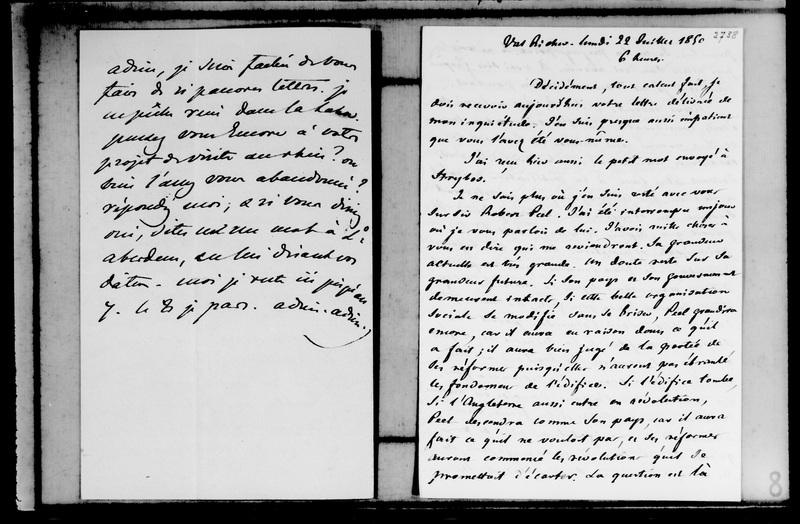 adieu, je suis fachée de vous
faire de si pauvres lettres. je
ne puise rien dans la
pensez vous encore à votre
projet de visite au rhin ? ou
bien l'avez vous abandonné ?
répondez moi ; & si vous dites
oui, dites un mot à Ld
aberdeen, en lui disant vos
dates. moi je reste ici jusqu'au
7. le 8 je pars. adieu. adieu.
2738
Val Richer - Lundi 22 Juillet 1850
6 heures
Décidément, tout calcul fait, je
dois recevoir aujourd'hui votre lettre délivrée de
mon inquiétude. J'en suis presque aussi impatient
que vous l'avez été vous-même.
J'ai reçu hier aussi le petit mot envoyé à

Je ne sais plus où j'en suis resté avec vous
sur Sir Robert Peel. J'ai été interrompu un jour
où je vous parlois de lui. J'avois mille choses à
vous en dire qui me reviendront. Sa grandeur
actuelle est très grande. Un doute reste sur sa
grandeur future. Si son pays et son gouvernement
demeurent intacts, si cette belle organisation
sociale se modifie sans se briser, Peel grandira
encore, car il aura eu raison dans ce qu'il
a fait ; il aura bien jugé de la portée de
ses réformes puisqu'elles n'auront pas ébranlé
les fondemens de l'édifice. Si l'édifice tombe,
si l'Angleterre aussi entre en révolution,
Peel descendra comme son pays, car il aura
fait ce qu'il ne vouloit pas, et ses réformes
auront commencé les révolutions qu'il se
promettoit d'écarter. La question est là
8